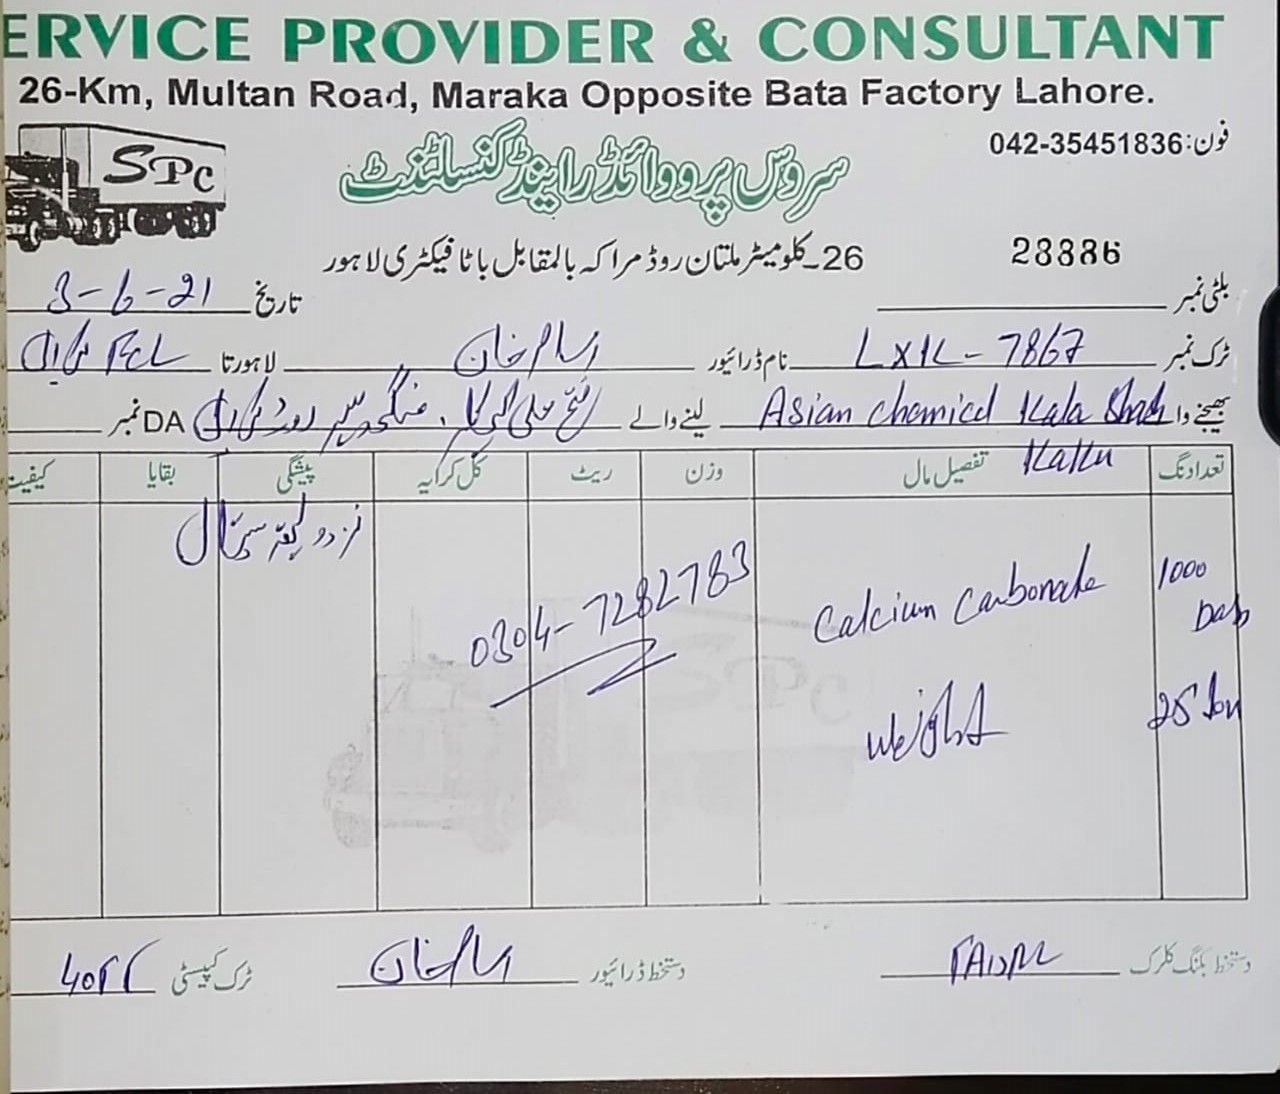 ERVICE PROVIDER & CONSULTANT
26-Km, Multan Road, Maraka Opposite Bata Factory Lahore.
SPC
سروس پرووائڈر اینڈ کنسلٹنٹ
فون: 042-35451836
26۔کلومیٹر ملتان روڈ مراکہ بالمقابل باٹا فیکٹری لاہور
23886
بلٹی نمبر
تاریخ 3-6-21
ٹرک نمبر LXK-7867 نام ڈرائیور خان لاہور تا
بھیجنے وا Asian chemical Kala Shah Kaku لینے والے روڈ DA نمبر
تعداد نگ تفصیل مال وزن ریٹ کل کرایہ پیشگی بقایا کیفیت
نزد
1000 Calcium Carbonate
0304-7282783
25 ton Weight
SPC
دستخط بلنگ کلرک دستخط ڈرائیور خان ٹرک کپیسٹی